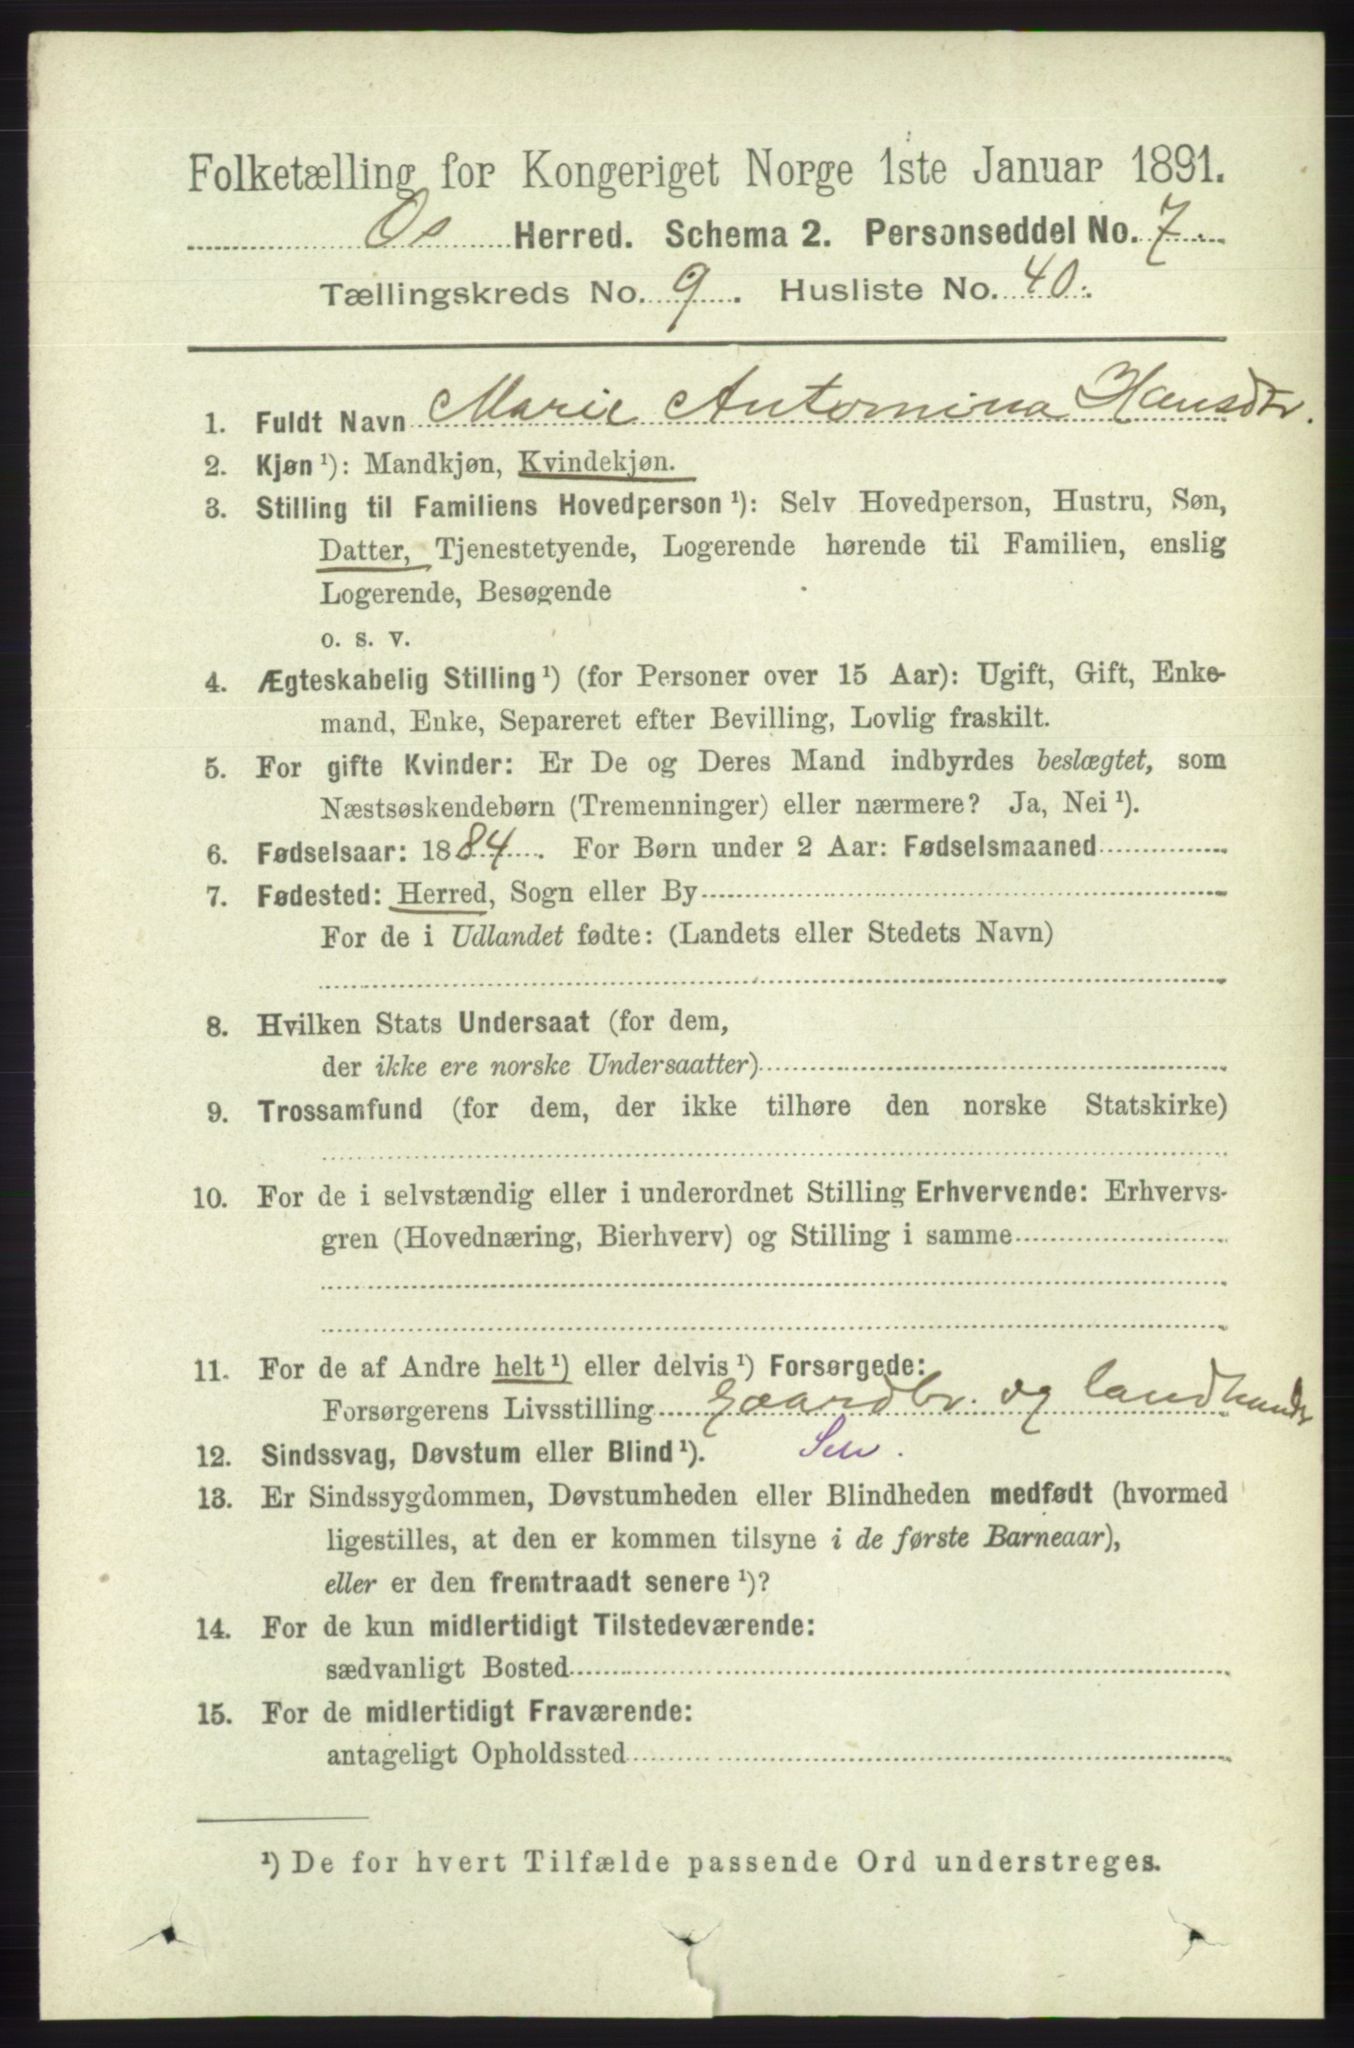 Folketælling for Kongeriget Norge 1ste Januar 1891.
Os Herred. Schema 2. Personseddel No. 7
Tællingskreds No. 9. Husliste No. 40.
1. Fuldt Navn Marie Antomina Hansdtr.
2. Kjøn ¹): Mandkjøn, Kvindekjøn.
3. Stilling til Familiens Hovedperson ¹): Selv Hovedperson, Hustru, Søn,
Datter, Tjenestetyende, Logerende hørende til Familien, enslig
Logerende, Besøgende
o. s. v.
4. Ægteskabelig Stilling ¹) (for Personer over 15 Aar): Ugift, Gift, Enke-
mand, Enke, Separeret efter Bevilling, Lovlig fraskilt.
5. For gifte Kvinder: Er De og Deres Mand indbyrdes beslægtet, som
Næstsøskendebørn (Tremenninger) eller nærmere? Ja, Nei ¹).
6. Fødselsaar: 1884. For Børn under 2 Aar: Fødselsmaaned
7. Fødested: Herred, Sogn eller By
For de i Udlandet fødte: (Landets eller Stedets Navn)
8. Hvilken Stats Undersaat (for dem,
der ikke ere norske Undersaatter)
9. Trossamfund (for dem, der ikke tilhøre den norske Statskirke)
10. For de i selvstændig eller i underordnet Stilling Erhvervende: Erhvervs-
gren (Hovednæring, Bierhverv) og Stilling i samme
11. For de af Andre helt ¹) eller delvis ¹) Forsørgede:
Forsørgerens Livsstilling Gaardbr. og landhandr
12. Sindssvag, Døvstum eller Blind ¹). Selv.
13. Er Sindssygdommen, Døvstumheden eller Blindheden medfødt (hvormed
ligestilles, at den er kommen tilsyne i de første Barneaar),
eller er den fremtraadt senere ¹)?
14. For de kun midlertidigt Tilstedeværende:
sædvanligt Bosted
15. For de midlertidigt Fraværende:
antageligt Opholdssted
¹) De for hvert Tilfælde passende Ord understreges.